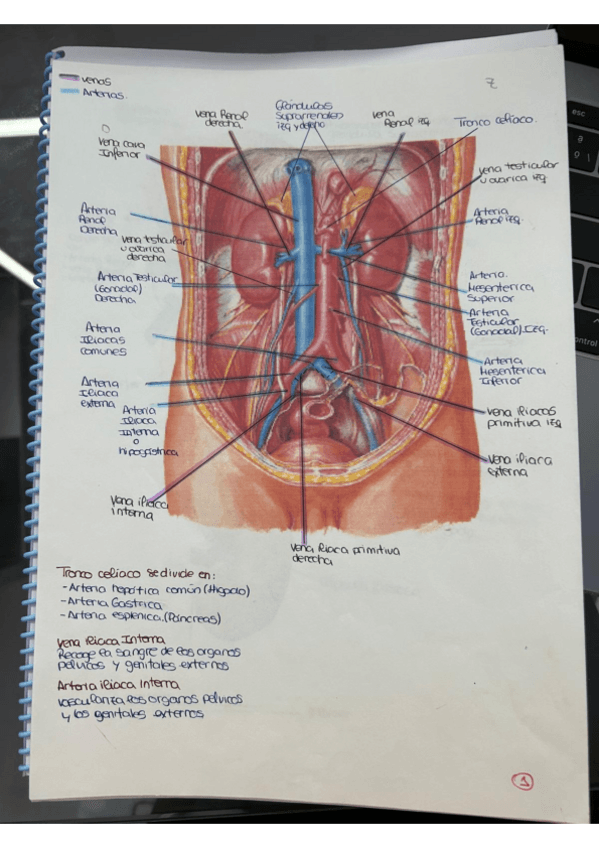 venas
Arterias.
7
vena Renal
derecha
Glándulas
Suprarrenales
IZQ y derecha
vena
Renal IZQ
Tronco celíaco.
Vena cava
Inferior
vena testicular
u ovarica IZQ
Arteria
Renal
Derecha
Arteria
Renal IZQ.
vena testicular
u ovarica
derecha
Arteria Testicular
(Gonadal)
Derecha
Arteria
Mesenterica
Superior
Arteria
Testicular
(Gonadal) IZQ.
Arteria
Iliacas
comunes
Arteria
Mesenterica
Inferior
Arteria
Iliaca
externa
Arteria
Iliaca
Interna
o
hipogástrica
vena iliacas
primitiva IZQ
vena iliaca
externa
Vena iliaca
interna
vena iliaca primitiva
derecha
Tronco celiaco se divide en:
- Arteria hepática común (Higado)
- Arteria Gastrica
- Arteria esplenica. (Páncreas)
vena Iliaca Interna
Recoge la sangre de los organos
pelvicos y genitales externos
Arteria iliaca Interna
vasculariza los organos pelvicos
y los genitales externos
1
esc